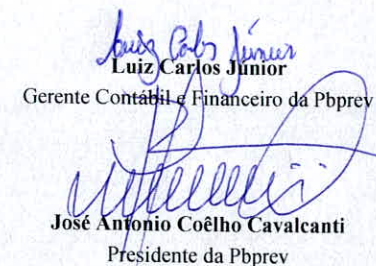 Luiz Carlos Júnior
Luiz Carlos Júnior
Gerente Contábil e Financeiro da Pbprev
José Antonio Coêlho Cavalcanti
Presidente da Pbprev